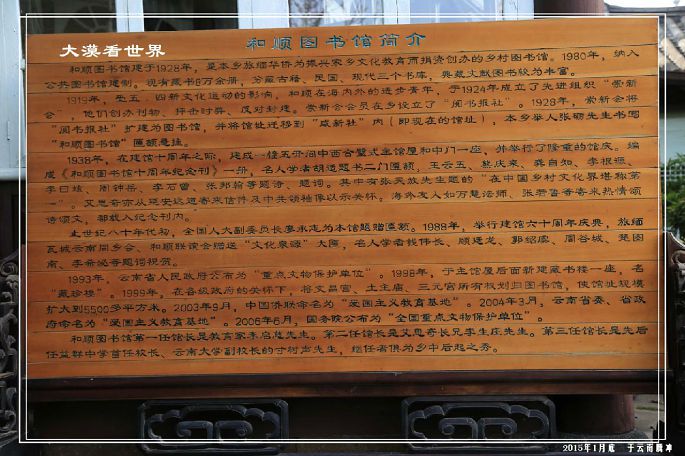 大漠看世界
和顺图书馆简介
和顺图书馆建于1928年，是本乡旅缅华侨为振兴家乡文化教育而捐资创办的乡村图书馆。1980年，纳入
公共图书馆建制。现有藏书8万余册，分藏古籍、民国、现代三个书库，典藏文献图书较为丰富。
1919年，受五．四新文化运动的影响，和顺在海内外的进步青年，于1924年成立了先进组织“崇新
会”，他们创办刊物、抨击时弊、反对封建。崇新会会员在乡设立了“阅书报社”。1928年，崇新会将
“阅书报社”扩建为图书馆，并将馆址迁移到“咸新社”内（即现在的馆址），本乡举人张砺先生书写
“和顺图书馆”匾额悬挂。
1938年，在建馆十周年之际，建成一幢五开间中西合璧式主馆屋和中门一座，并举行了隆重的馆庆，编
成《和顺图书馆十周年纪念刊》一册，名人学者胡适题书二门匾额，王云五、熊庆来、龚自知、李根源、
李曰垓、周钟岳、李石曾、张邦翰等题诗、题词。其中有张天放先生题的“在中国乡村文化界堪称第
一”。艾思奇亦从延安远道寄来信件及中共领袖像以示关怀。海外友人如万慧法师、张若鲁寄来热情颂
诗颂文，都载入纪念刊内。
上世纪八十年代初，全国人大副委员长廖承志为本馆题赠匾额。1988年，举行建馆六十周年庆典，旅缅
瓦城云南同乡会、和顺联谊会赠送“文化泉源”大匾，名人学者钱伟长、顾廷龙、郭绍虞、周谷城、楚图
南、李希泌等题词祝贺。
1993年，云南省人民政府公布为“重点文物保护单位”。1998年，于主馆屋后面新建藏书楼一座，名
“藏珍楼”。1999年，在各级政府的关怀下，将文昌宫、土主庙、三元宫所有权划归图书馆，使馆址规模
扩大到5500多平方米。2003年9月，中国侨联命名为“爱国主义教育基地”。2004年3月，云南省委、省政
府命名为“爱国主义教育基地”。2006年6月，国务院公布为“全国重点文物保护单位”。
和顺图书馆第一任馆长是教育家李启慈先生。第二任馆长是艾思奇长兄李生庄先生。第三任馆长是先后
任益群中学首任校长、云南大学副校长的寸树声先生，继任者俱为乡中后起之秀。
2015年1月底 于云南腾冲